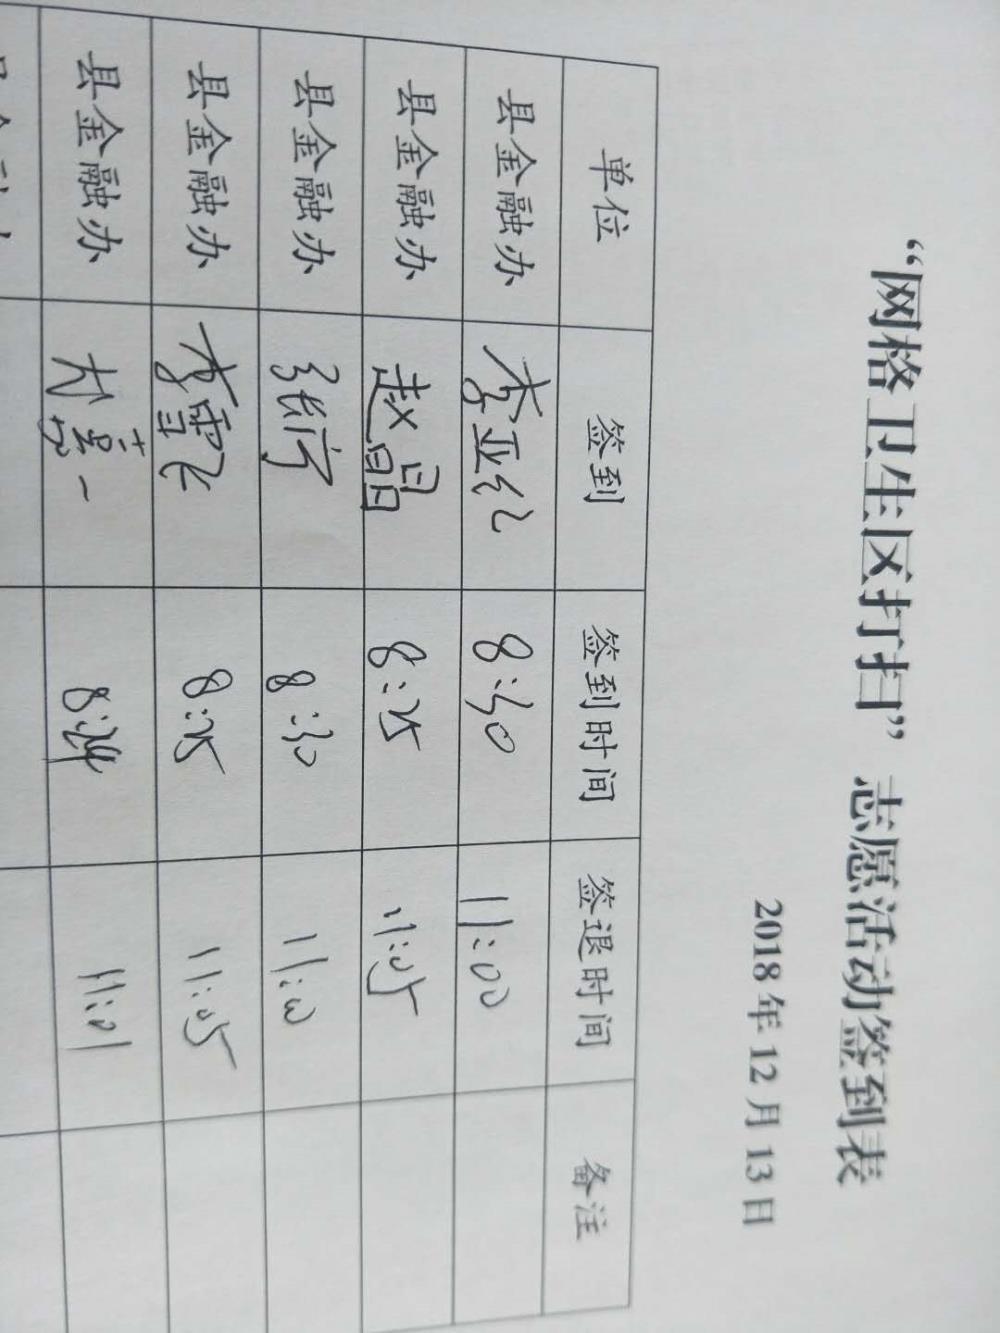 “网格卫生区打扫”志愿活动签到表
2018年12月13日
单位 签到 签到时间 签退时间 备注
县金融办 李亚红 8:30 11:00
县金融办 赵晶 8:25 11:05
县金融办 8:30 11:00
县金融办 李雪飞 8:25 11:05
县金融办 8:24 11:01